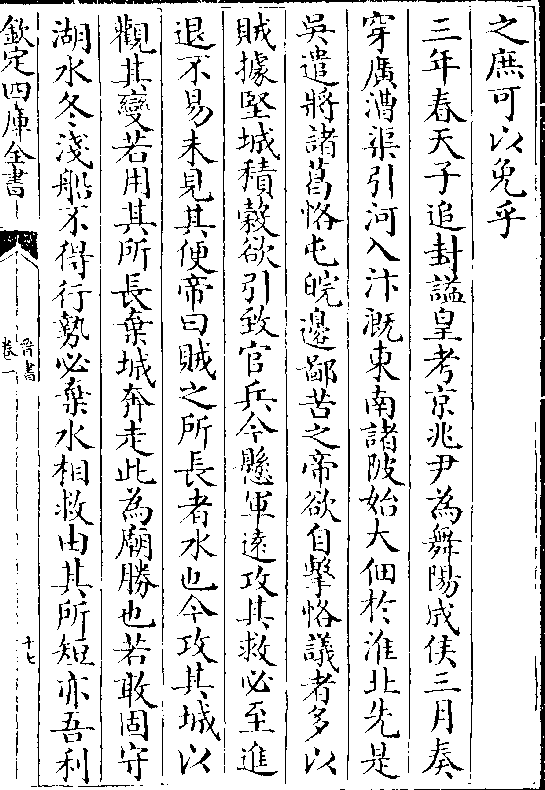 之庶可以免乎
三年春天子追封謚皇考京兆尹為舞陽成侯三月奏
穿廣漕渠引河入汴溉東南諸陂始大佃於淮北先是
吳遣將諸葛恪屯皖邊鄙苦之帝欲自擊恪議者多以
賊據堅城積穀欲引致官兵今懸軍遠攻其救必至進
退不易未見其便帝曰賊之所長者水也今攻其城以
觀其變若用其所長棄城奔走此為廟勝也若敢固守
湖水冬淺船不得行勢必棄水相救由其所短亦吾利
欽定四庫全書
晉書
卷一
十七